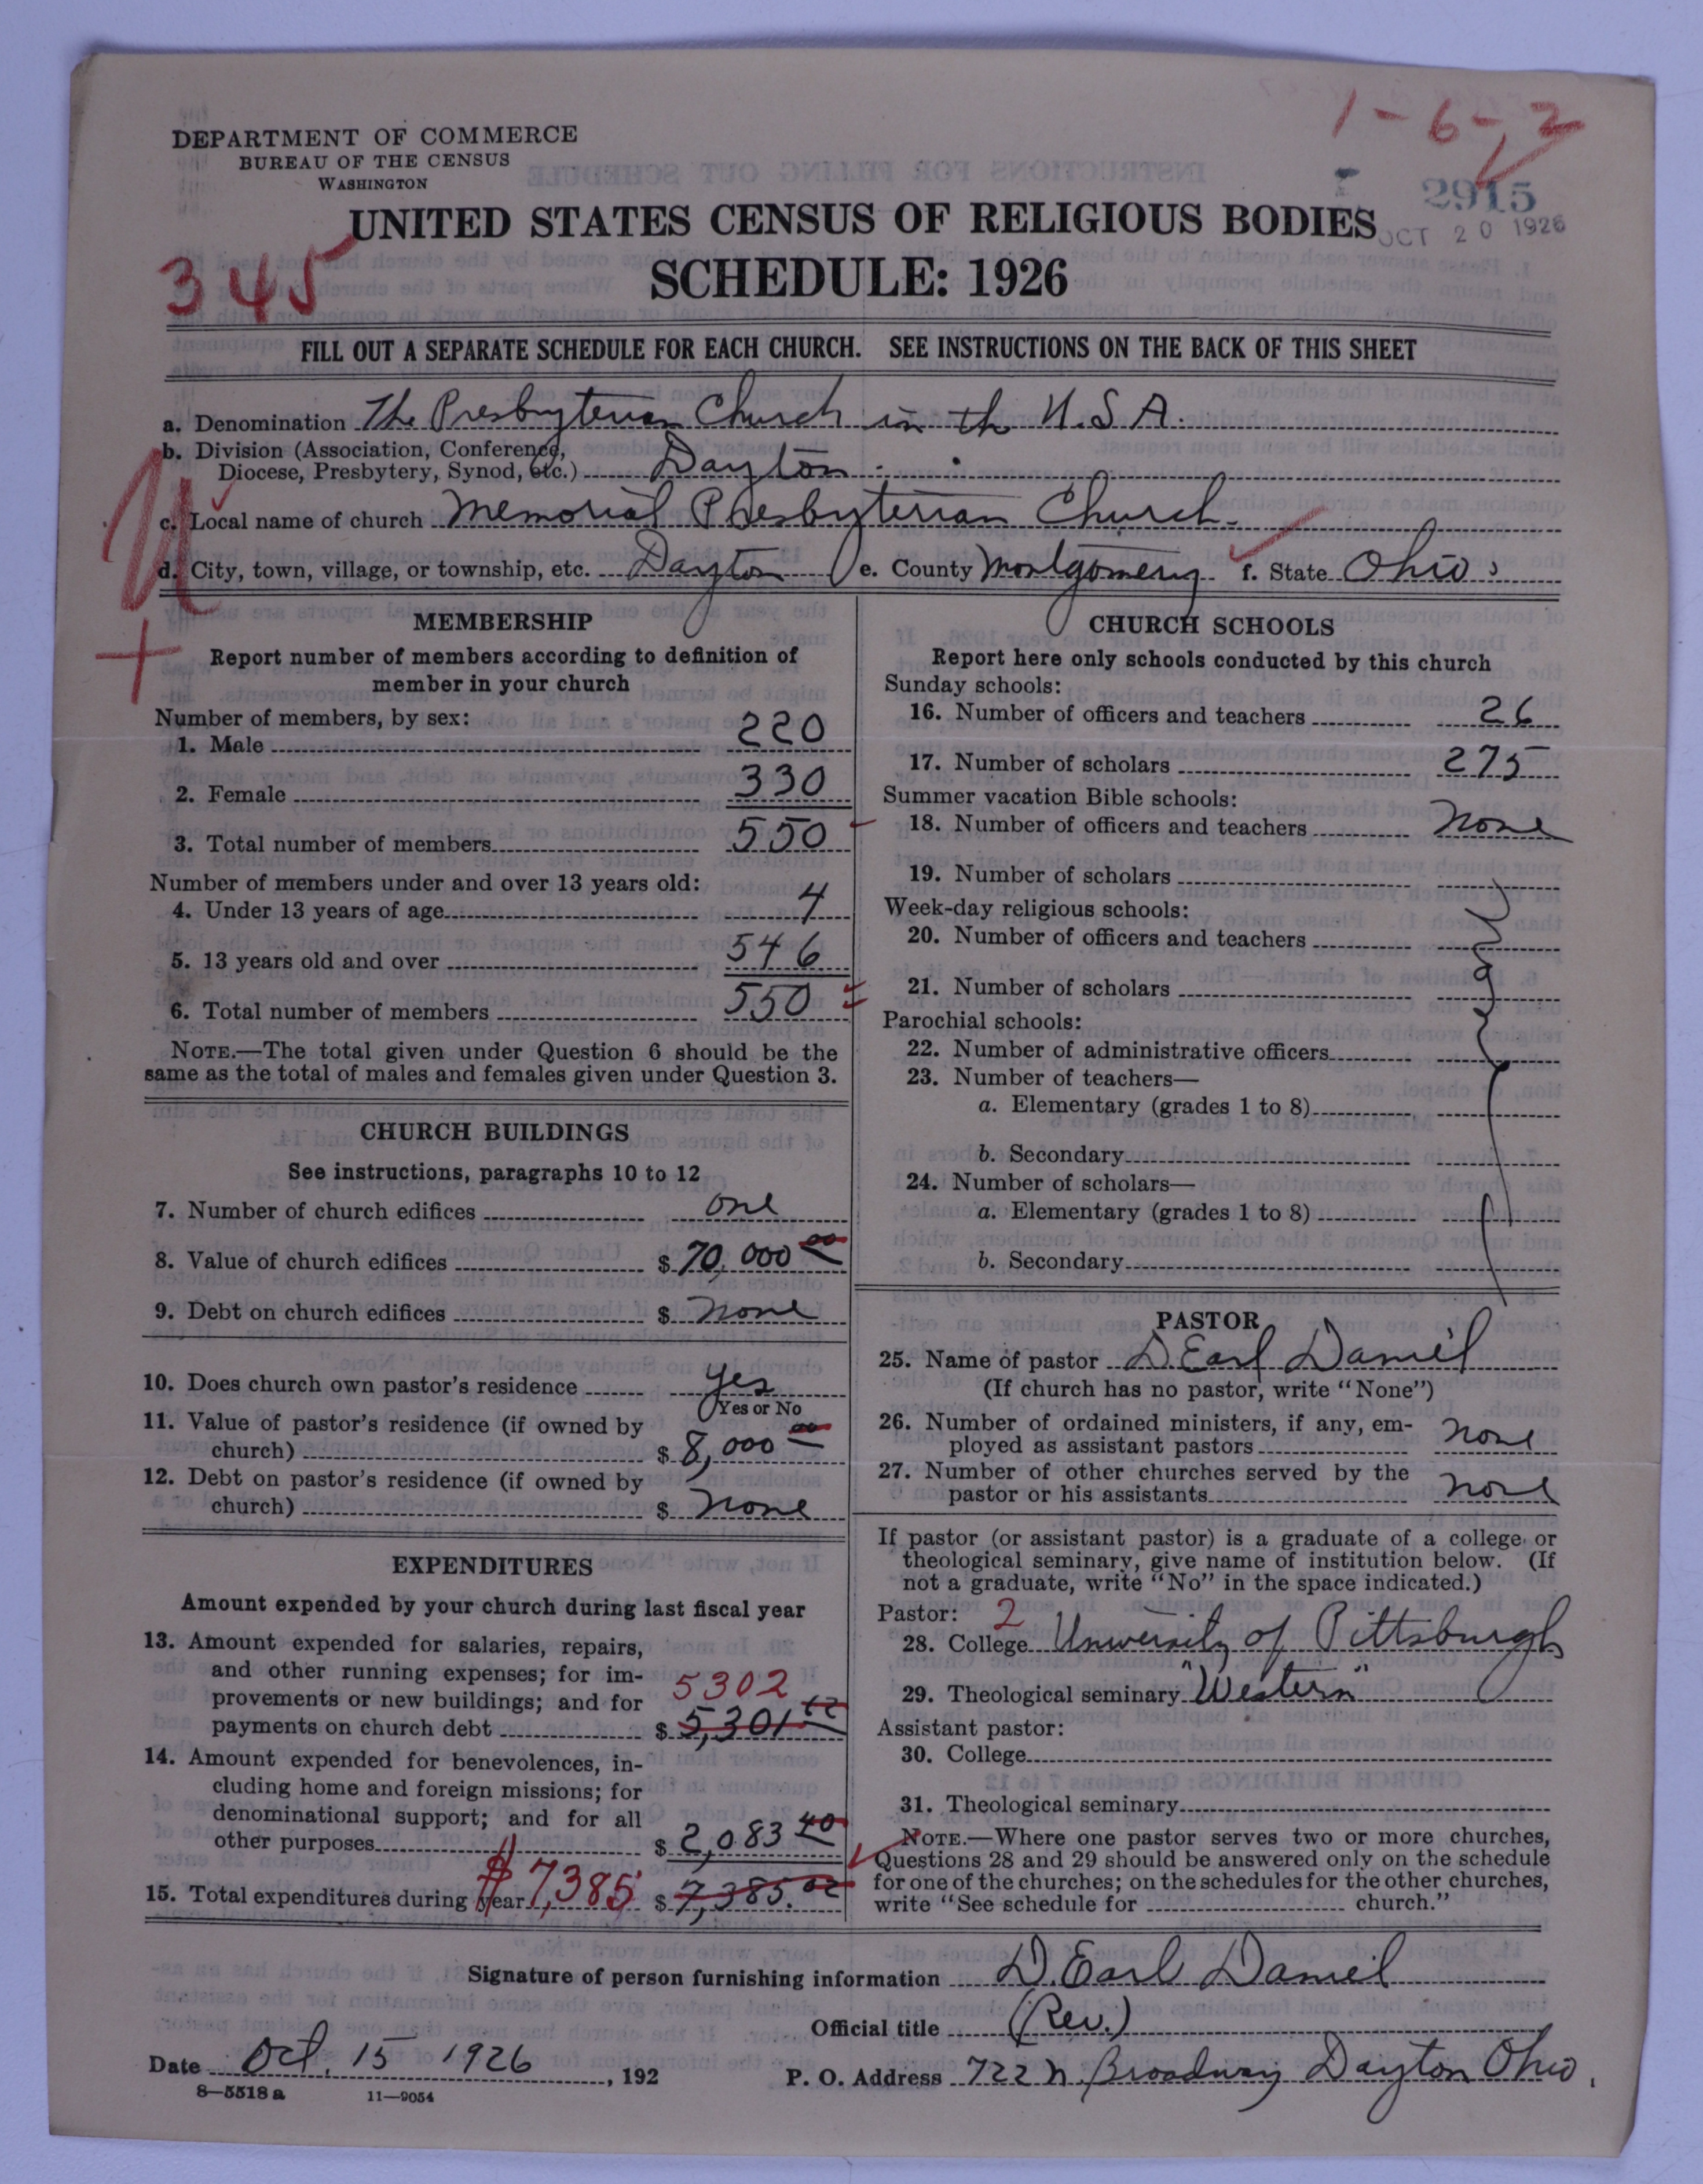 1-6-2
DEPARTMENT OF COMMERCE
BUREAU OF THE CENSUS
WASHINGTON
2915
OCT 20 1926
UNITED STATES CENSUS OF RELIGIOUS BODIES
SCHEDULE: 1926
345
FILL OUT A SEPARATE SCHEDULE FOR EACH CHURCH. SEE INSTRUCTIONS ON THE BACK OF THIS SHEET
a. Denomination The Presbyterian Church in the U.S.A.
b. Division (Association, Conference,
Diocese, Presbytery, Synod, etc.) Dayton
c. Local name of church Memorial Presbyterian Church.
d. City, town, village, or township, etc. Dayton e. County Montgomery f. State Ohio
U
+
MEMBERSHIP
Report number of members according to definition of
member in your church
Number of members, by sex:
1. Male 220
2. Female 330
3. Total number of members 550
Number of members under and over 13 years old:
4. Under 13 years of age 4
5. 13 years old and over 546
6. Total number of members 550
NOTE.—The total given under Question 6 should be the
same as the total of males and females given under Question 3.
CHURCH BUILDINGS
See instructions, paragraphs 10 to 12
7. Number of church edifices one
8. Value of church edifices $ 70,000 00
9. Debt on church edifices $ None
10. Does church own pastor's residence yes
Yes or No
11. Value of pastor's residence (if owned by
church) $ 8,000 00
12. Debt on pastor's residence (if owned by
church) $ None
EXPENDITURES
Amount expended by your church during last fiscal year
13. Amount expended for salaries, repairs,
and other running expenses; for im-
provements or new buildings; and for 5302
payments on church debt $ 5,301 62
14. Amount expended for benevolences, in-
cluding home and foreign missions; for
denominational support; and for all
other purposes $ 2,083 40
15. Total expenditures during year $7,385 $ 7,385.02
CHURCH SCHOOLS
Report here only schools conducted by this church
Sunday schools:
16. Number of officers and teachers 26
17. Number of scholars 275
Summer vacation Bible schools:
18. Number of officers and teachers None
19. Number of scholars
Week-day religious schools:
20. Number of officers and teachers
21. Number of scholars
Parochial schools:
22. Number of administrative officers
23. Number of teachers—
a. Elementary (grades 1 to 8)
b. Secondary
24. Number of scholars—
a. Elementary (grades 1 to 8)
b. Secondary
PASTOR
25. Name of pastor D. Earl Daniel
(If church has no pastor, write "None")
26. Number of ordained ministers, if any, em-
ployed as assistant pastors None
27. Number of other churches served by the
pastor or his assistants None
If pastor (or assistant pastor) is a graduate of a college or
theological seminary, give name of institution below. (If
not a graduate, write "No" in the space indicated.)
Pastor: 2
28. College University of Pittsburgh
29. Theological seminary "Western"
Assistant pastor:
30. College
31. Theological seminary
NOTE.—Where one pastor serves two or more churches,
Questions 28 and 29 should be answered only on the schedule
for one of the churches; on the schedules for the other churches,
write "See schedule for church."
Signature of person furnishing information D. Earl Daniel
Official title (Rev.)
Date Oct. 15 1926, 192
P. O. Address 722 N. Broadway Dayton Ohio.
8—5518 a 11—9054